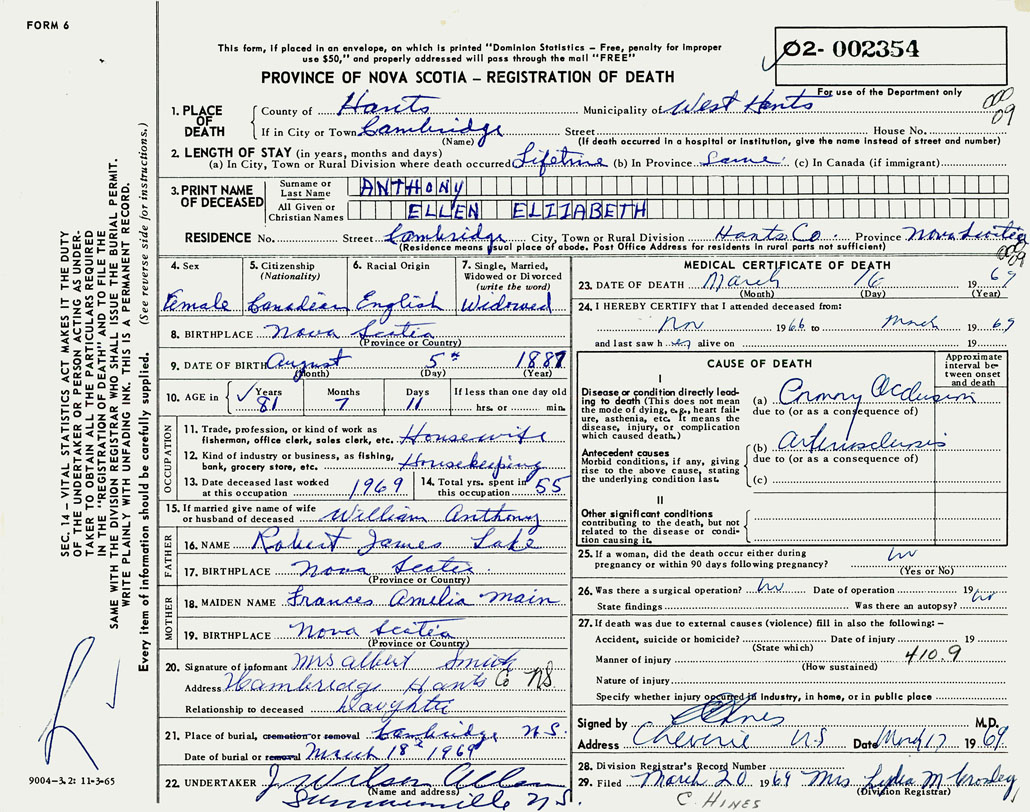 FORM 6
This form, if placed in an envelope, on which is printed "Dominion Statistics – Free, penalty for improper
use $50," and properly addressed will pass through the mail "FREE"
02- 002354
For use of the Department only
PROVINCE OF NOVA SCOTIA – REGISTRATION OF DEATH
009
1. PLACE OF DEATH
County of Hants Municipality of West Hants
If in City or Town Cambridge Street House No.
(Name) (If death occurred in a hospital or institution, give the name instead of street and number)
2. LENGTH OF STAY (in years, months and days)
(a) In City, Town or Rural Division where death occurred Lifetime (b) In Province Same (c) In Canada (if immigrant)
3. PRINT NAME OF DECEASED
Surname or Last Name ANTHONY
All Given or Christian Names ELLEN ELIZABETH
RESIDENCE No. Street Cambridge City, Town or Rural Division Hants Co. Province Nova Scotia
(Residence means usual place of abode. Post Office Address for residents in rural parts not sufficient)
009
4. Sex
Female
5. Citizenship
(Nationality)
Canadian
6. Racial Origin
English
7. Single, Married,
Widowed or Divorced
(write the word)
Widowed
8. BIRTHPLACE Nova Scotia
(Province or Country)
9. DATE OF BIRTH August 5th 1887
(Month) (Day) (Year)
10. AGE in Years Months Days If less than one day
81 7 11 hrs. or min.
OCCUPATION
11. Trade, profession, or kind of work as
fisherman, office clerk, sales clerk, etc. Housewife
12. Kind of industry or business, as fishing,
bank, grocery store, etc. Housekeeping
13. Date deceased last worked
at this occupation 1969
14. Total yrs. spent in
this occupation 55
15. If married give name of wife
or husband of deceased William Anthony
FATHER
16. NAME Robert James Lake
17. BIRTHPLACE Nova Scotia
(Province or Country)
MOTHER
18. MAIDEN NAME Frances Amelia Main
19. BIRTHPLACE Nova Scotia
(Province or Country)
20. Signature of informant Mrs Albert Smith
Address Cambridge Hants Co NS
Relationship to deceased Daughter
21. Place of burial, cremation or removal Cambridge N.S.
Date of burial or removal March 18th 1969
22. UNDERTAKER J. Wilson Allen
(Name and address)
Summerville N.S.
MEDICAL CERTIFICATE OF DEATH
23. DATE OF DEATH March 16 1969
(Month) (Day) (Year)
24. I HEREBY CERTIFY that I attended deceased from:
Nov 1966 to March 1969
and last saw her alive on 19
CAUSE OF DEATH
Approximate
interval be-
tween onset
and death
I
Disease or condition directly lead-
ing to death (This does not mean
the mode of dying, e.g., heart fail-
ure, asthenia, etc. It means the
disease, injury, or complication
which caused death.)
(a) Coronary Occlusion
due to (or as a consequence of)
Antecedent causes
Morbid conditions, if any, giving
rise to the above cause, stating
the underlying condition last.
(b) Arteriosclerosis
due to (or as a consequence of)
(c)
II
Other significant conditions
contributing to the death, but not
related to the disease or condi-
tion causing it.
25. If a woman, did the death occur either during
pregnancy or within 90 days following pregnancy? no
(Yes or No)
26. Was there a surgical operation? no Date of operation 19
State findings Was there an autopsy? no
27. If death was due to external causes (violence) fill in also the following:–
Accident, suicide or homicide? Date of injury 19
(State which)
Manner of injury 410.9
(How sustained)
Nature of injury
Specify whether injury occurred in industry, in home, or in public place
Signed by M.D.
Address Cheverie N.S Date Mar 17 1969
28. Division Registrar's Record Number
29. Filed March 20 1969 Mrs Lydia M Crosley
(Division Registrar)
C. HINES
SEC. 14 – VITAL STATISTICS ACT MAKES IT THE DUTY
OF THE UNDERTAKER OR PERSON ACTING AS UNDER-
TAKER TO OBTAIN ALL THE PARTICULARS REQUIRED
IN THE "REGISTRATION OF DEATH" AND TO FILE THE
SAME WITH THE DIVISION REGISTRAR WHO SHALL ISSUE THE BURIAL PERMIT.
WRITE PLAINLY WITH UNFADING INK. THIS IS A PERMANENT RECORD.
Every item of information should be carefully supplied. (See reverse side for instructions.)
9004-3.2: 11-3-65